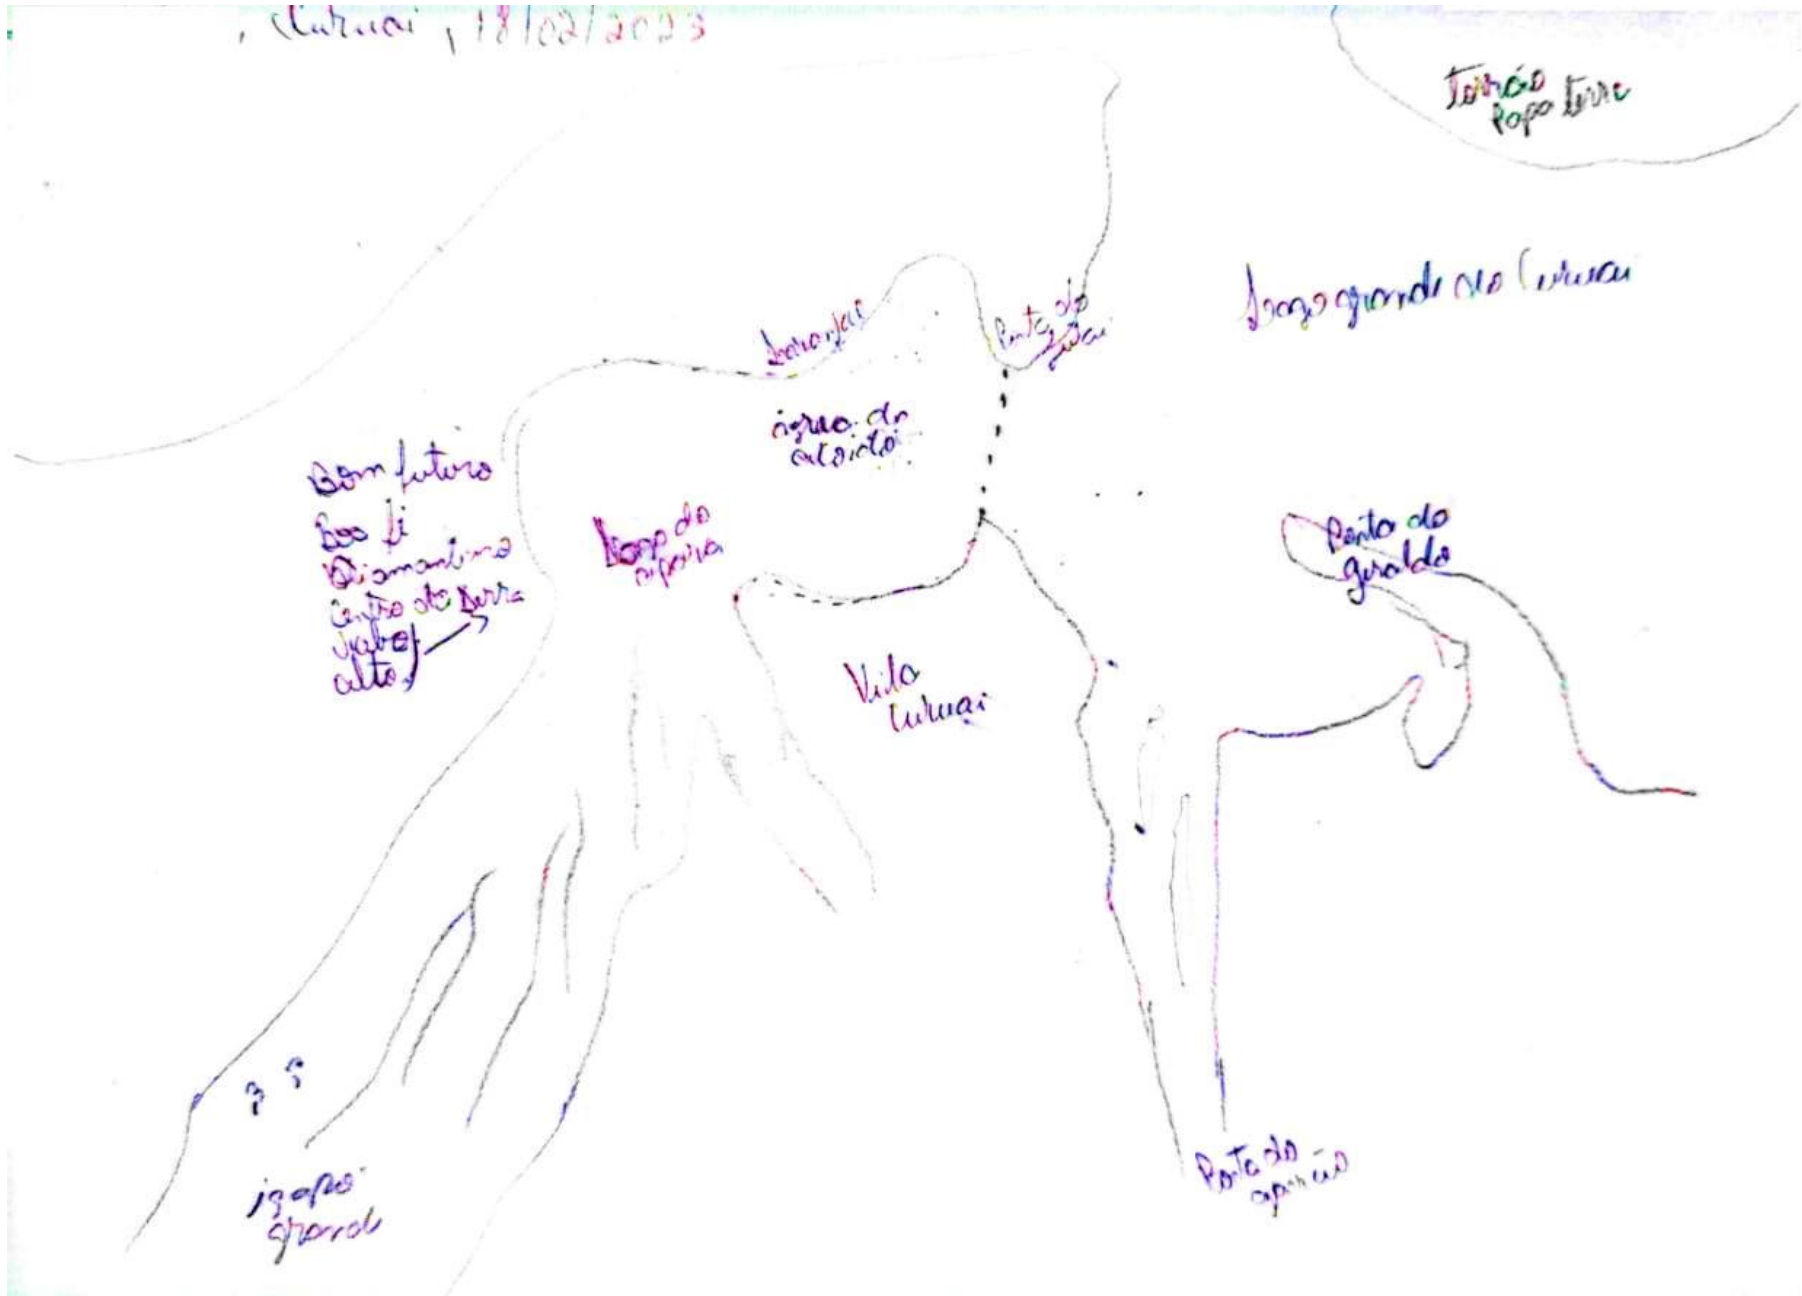 Curuai, 18/02/2023
terrão
Papa terra
Lago grande do Curuai
Ponta do
jutai
área do
Bom futuro
Boa fé
Diamantino
Centro da Serra
alto
Lago do
Ponta do
geraldo
Vila
Curuai
igapó
grande
Ponta do